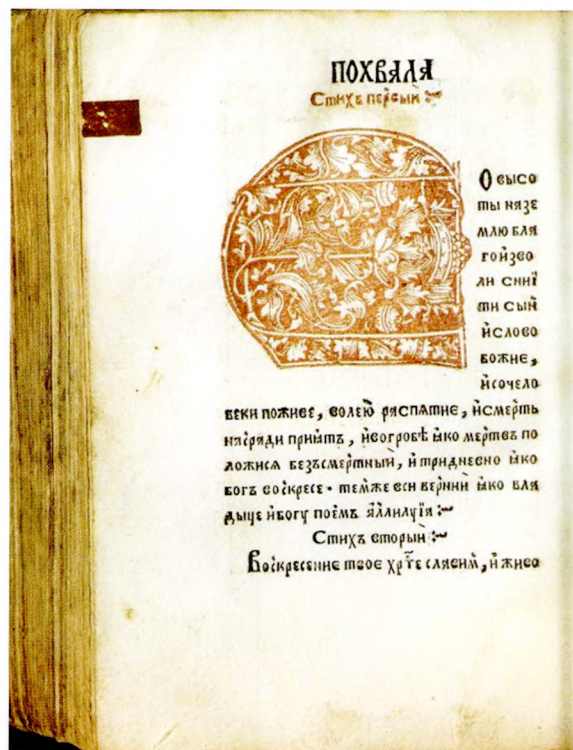 ПОХВАЛА
Стихъ первый :~
О высо
ты на зе
млю бла
гоизво
ли снїи
ти сый
и слово
божие,
и со чело
веки поживе, волею распѧтие, и смерть
нас ради приѧтъ, и во гробѣ ꙗко мертвъ по
ложисѧ безъсмертный, и тридневно ꙗко
богъ воскресе. темже вси вернии ꙗко вла
дыце и богу поемъ аллилуїа :~
Стихъ вторый :~
Воскресение твое хр҃те славим, и живо